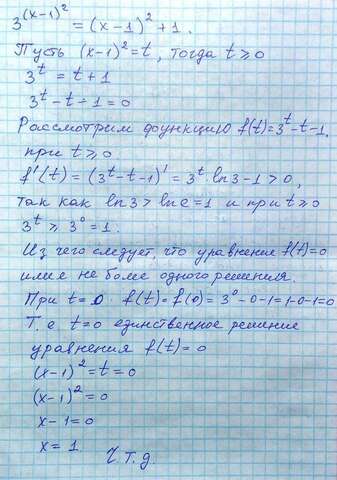 3^(x-1)^2 = (x-1)^2 + 1.
Пусть (x-1)^2 = t, тогда t ⩾ 0
3^t = t + 1
3^t - t - 1 = 0
Рассмотрим функцию f(t) = 3^t - t - 1,
при t ⩾ 0
f'(t) = (3^t - t - 1)' = 3^t · ln3 - 1 > 0,
так как ln3 > ln e = 1 и при t ⩾ 0
3^t ⩾ 3^0 = 1.
Из чего следует, что уравнение f(t) = 0
имеет не более одного решения.
При t = 0 f(t) = f(0) = 3^0 - 0 - 1 = 1 - 0 - 1 = 0
Т.е. t = 0 единственное решение
уравнения f(t) = 0
(x-1)^2 = t = 0
(x-1)^2 = 0
x - 1 = 0
x = 1 Ч.т.д.